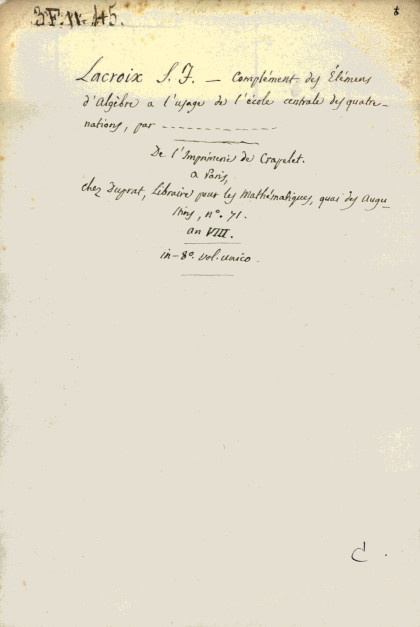 3F.IV.45.
Lacroix S. F. — Complément des Élémens
d'Algèbre a l'usage de l'école centrale des quatre-
nations, par ------------
De l'Imprimerie de Crapelet.
a Paris,
chez Duprat, Libraire pour les Mathématiques, quai des Augu-
stins, n.º 71.
an VIII.
in-8º. vol. unico.
C.